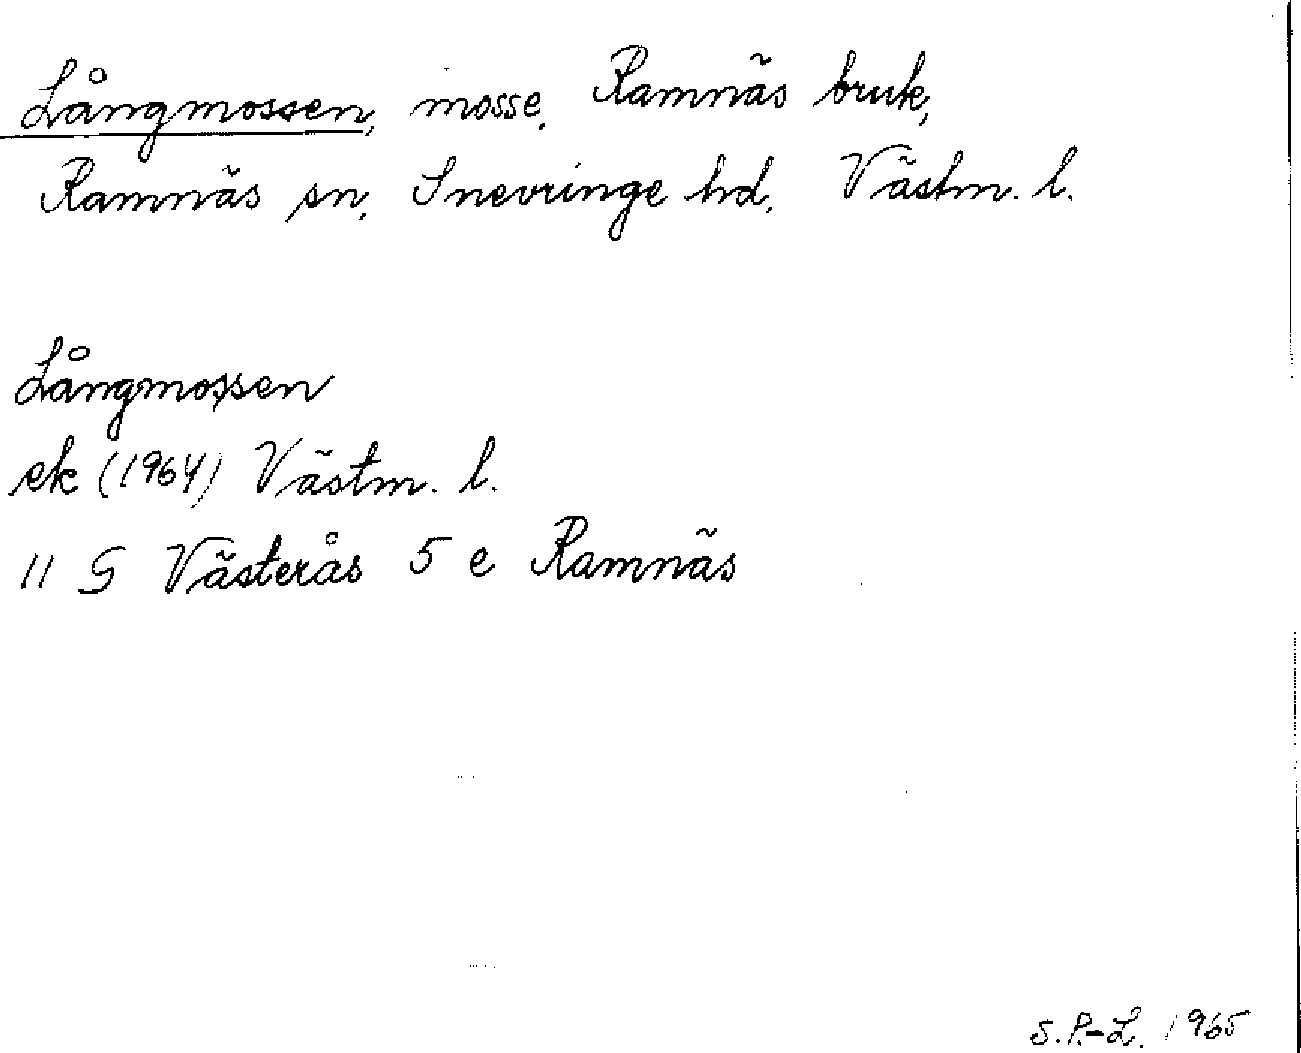 Långmossen, mosse, Ramnäs bruk,
Ramnäs sn, Snevringe hd, Västm. l.
Långmossen
ek (1964) Västm. l.
11 G Västerås 5 e Ramnäs
S.P.-L. 1965